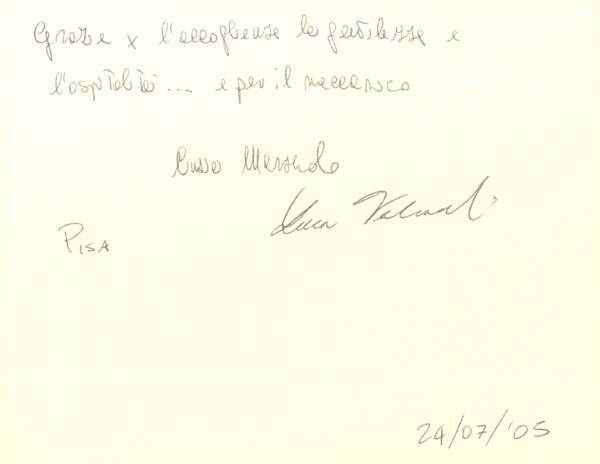 Grazie x l'accoglienza la gentilezza e
l'ospitalità ... e per il meccanico
Luca
PISA
24/07/'05